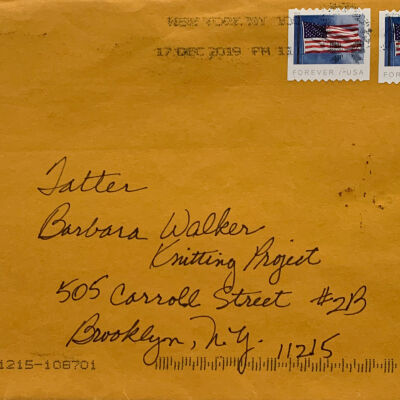 NEW YORK NY 10
17 DEC 2019 PM 11
FOREVER / USA
Tatter
Barbara Walker
Knitting Project
505 Carroll Street #2B
Brooklyn, N.Y. 11215
11215-108701